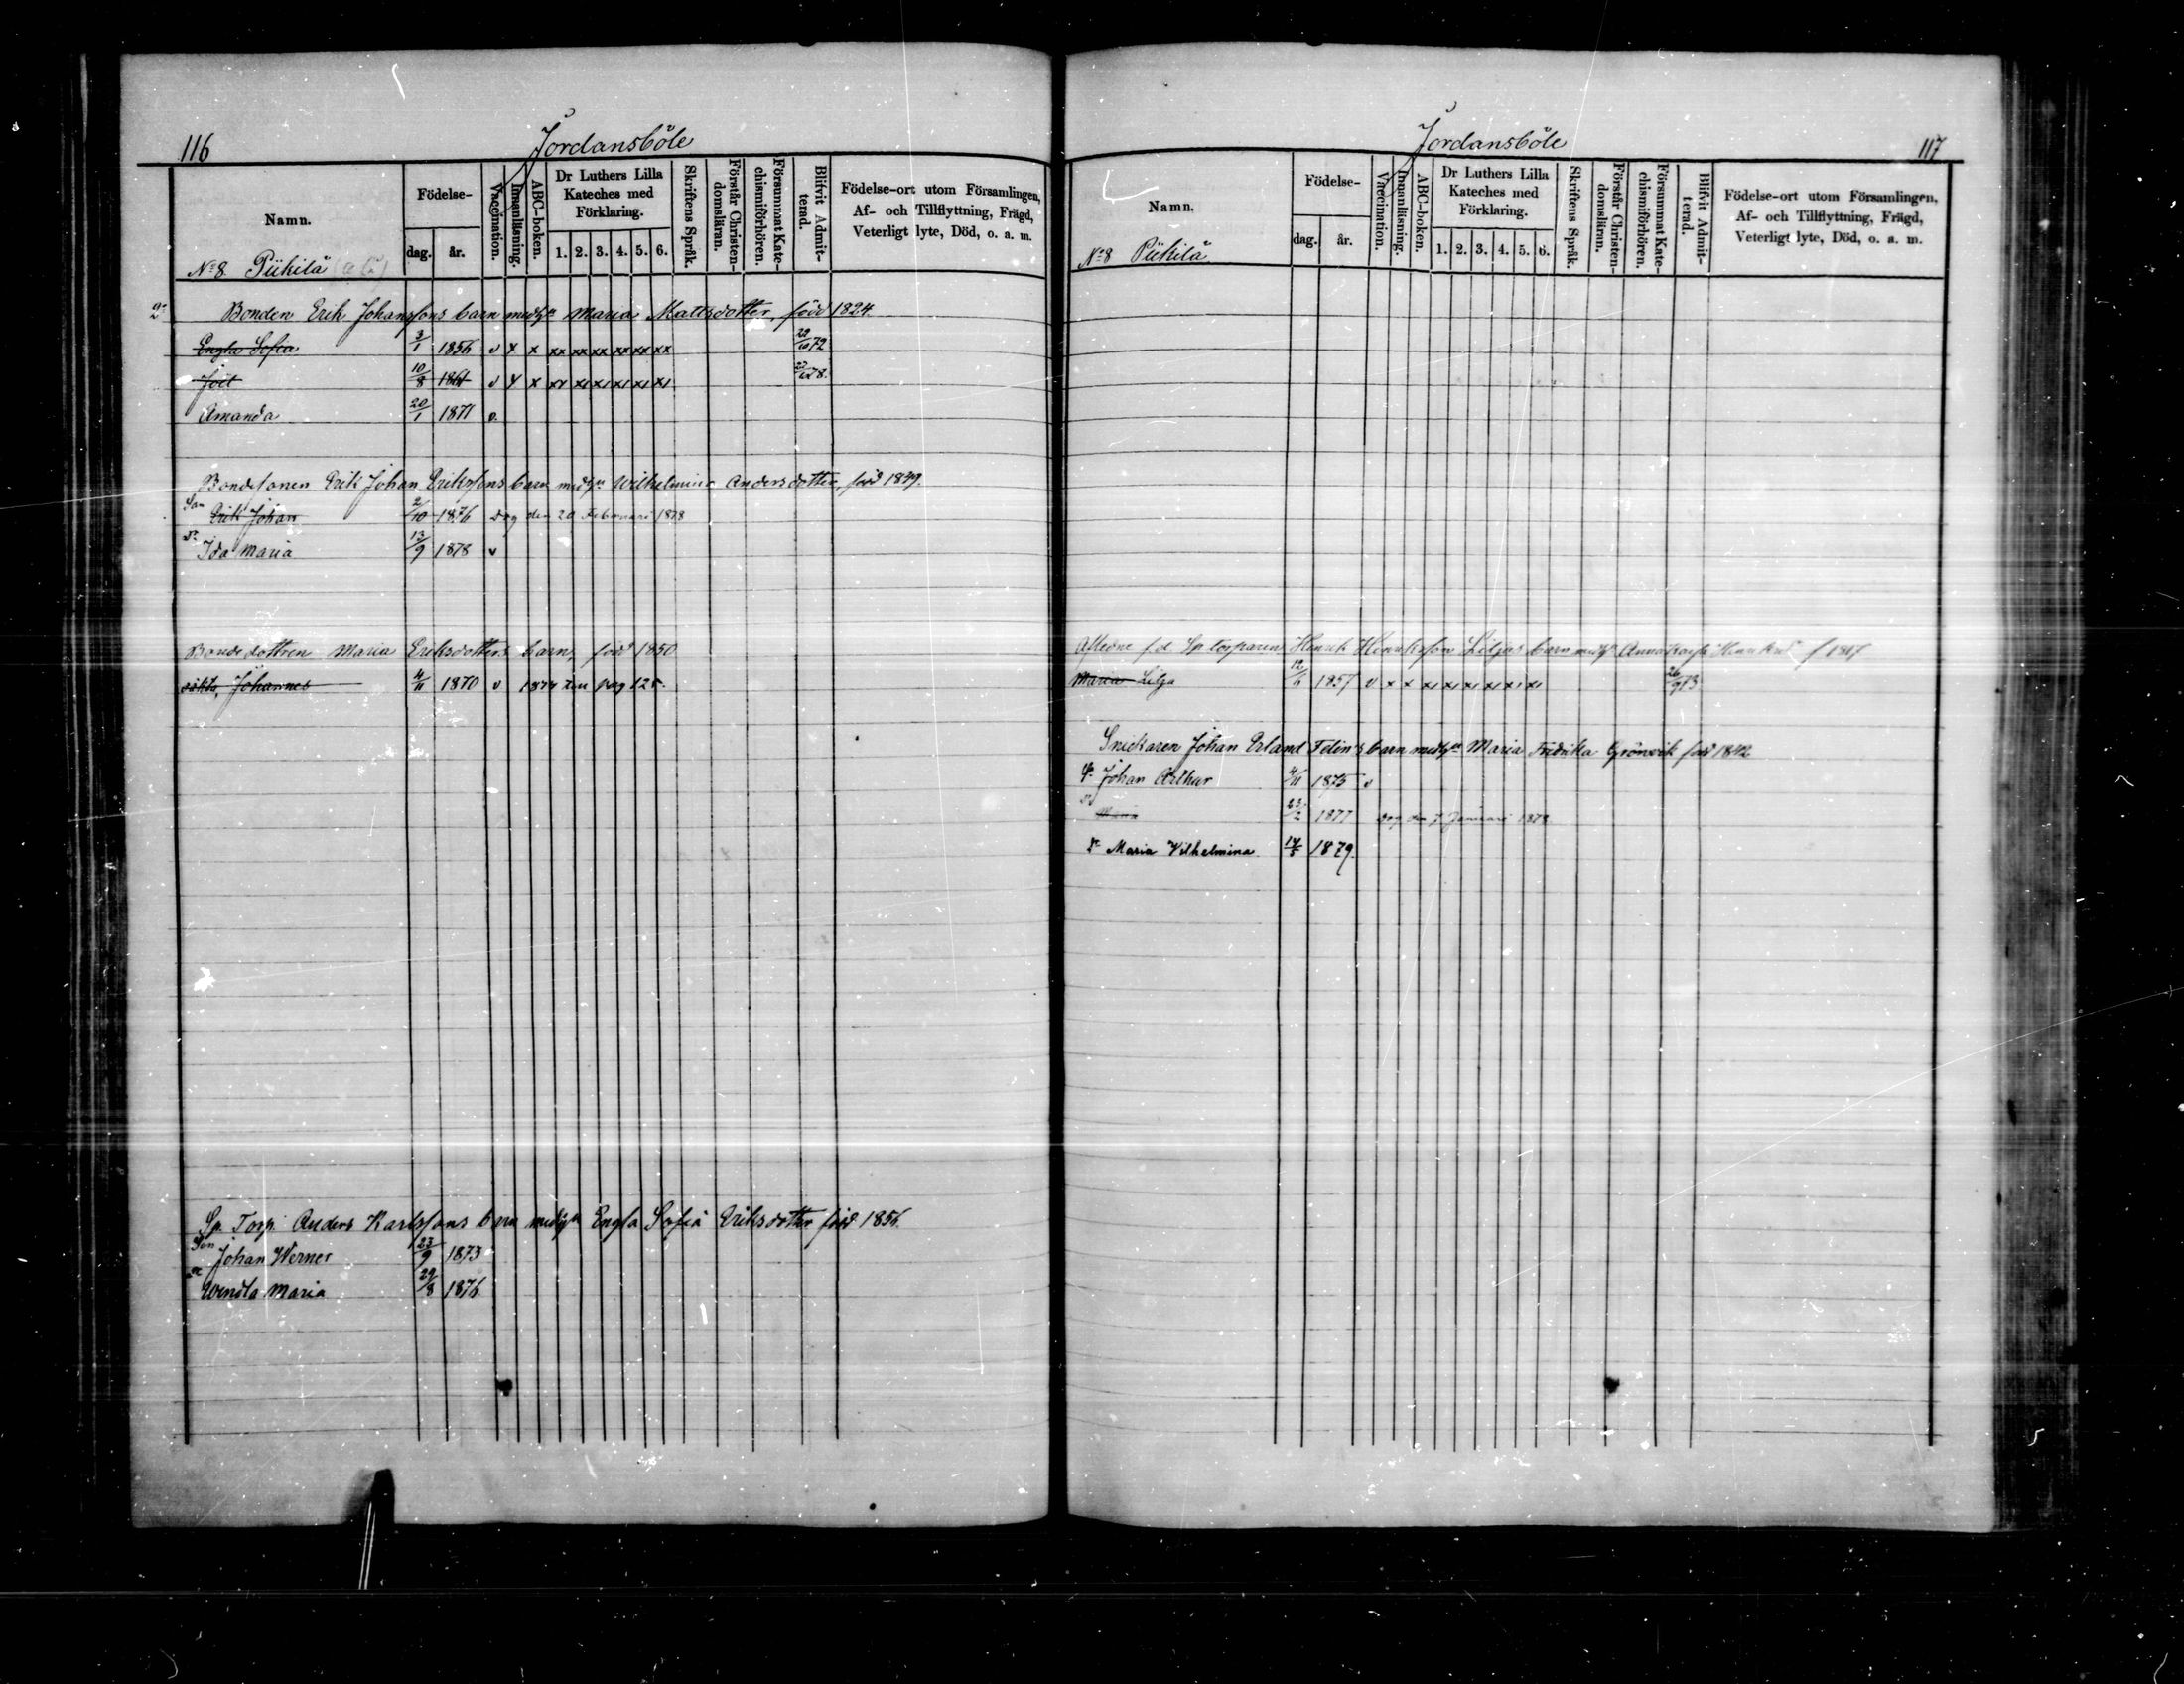 116
Jordansböle
Namn.
Födelse-
dag.
år.
Vaccination.
Innanläsning.
ABC-boken.
Dr Luthers Lilla
Kateches med
Förklaring.
1. 2. 3. 4. 5. 6.
Skriftens Språk.
Förstår Christen-
domsläran.
Försummat Kate-
chismiförhören.
Blifvit Admit-
terad.
Födelse-ort utom Församlingen,
Af- och Tillflyttning, Frägd,
Veterligt lyte, Död, o. a. m.
No 8 Piikilä
Bonden Erik Johanssons barn med Maria Mattsdotter, född 1824.
Engla Sofia 3/1 1856 v x x xx xx xx xx xx xx 72
Joel 10/8 1861 v x x 78.
Amanda 20/1 1871 v.
Bondesonen Erik Johan Erikssons barn med Wilhelmina Andersdotter, född 1849.
Son Erik Johan 2/10 1876 dog den 20 Februari 1878
Dr Ida Maria 13/9 1878 v
Bondedottren Maria Eriksdotters barn, född 1850
oäkta, Johannes 4/11 1870 v 1874 pag 125.
Sp. Torp. Anders Karlssons barn med Engla Sofia Eriksdotter född 1856.
Son Johan Werner 23/9 1873
Dr Wendla Maria 29/8 1876
117
Jordansböle
Namn.
Födelse-
dag.
år.
Vaccination.
Innanläsning.
ABC-boken.
Dr Luthers Lilla
Kateches med
Förklaring.
1. 2. 3. 4. 5. 6.
Skriftens Språk.
Förstår Christen-
domsläran.
Försummat Kate-
chismiförhören.
Blifvit Admit-
terad.
Födelse-ort utom Församlingen,
Af- och Tillflyttning, Frägd,
Veterligt lyte, Död, o. a. m.
No 8 Piikilä
Aflidne f.d. Sp. torparen Henrik Henriksson Liljas barn med
Maria Lilja 12/6 1857 v x x 73
Snickaren Johan Erland Felins barn med Maria Fredrika Grönvik född 1842
Johan Arthur 1875 v
Maria 23/2 1877 dog den 7 Januari 1878
Dr Maria Wilhelmina 1879.